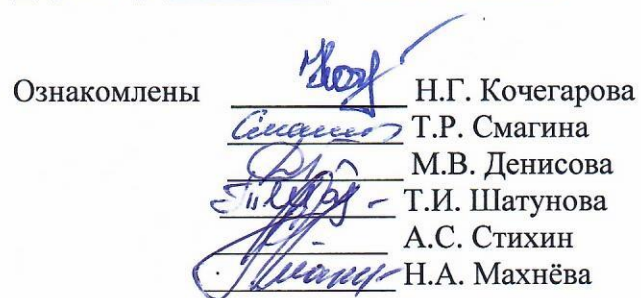 Ознакомлены Н.Г. Кочегарова
Т.Р. Смагина
М.В. Денисова
Т.И. Шатунова
А.С. Стихин
Н.А. Махнёва